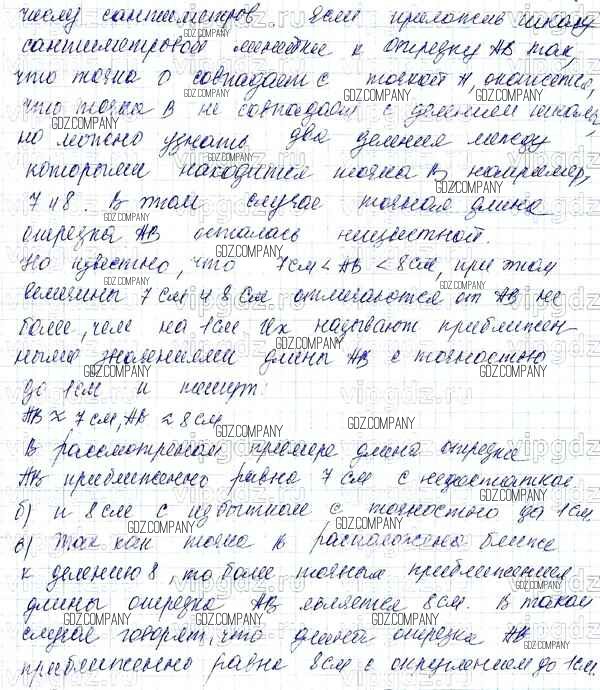 числу сантиметров. Если приложить шкалу
сантиметровой линейки к отрезку AB так,
что точка O совпадает с точкой A, окажется,
что точка B не совпадает с делением шкалы,
но можно узнать два деления между
которыми находится точка B, например,
7 и 8. В этом случае точная длина
отрезка AB осталась неизвестной.
Но известно, что 7 см < AB < 8 см, при этом
величины 7 см и 8 см отличаются от AB не
более, чем на 1 см. Их называют приближен-
ными значениями длины AB с точностью
до 1 см и пишут:
AB ≈ 7 см, AB ≈ 8 см
В рассмотренном примере длина отрезка
AB приближенно равна 7 см с недостатком
б) и 8 см с избытком с точностью до 1 см.
в) Так как точка B расположена ближе
к делению 8, то более точным приближением
длины отрезка AB является 8 см. В таком
случае говорят, что длина отрезка AB
приближенно равна 8 см с округлением до 1 см.
GDZ.COMPANY
vipgdz.ru